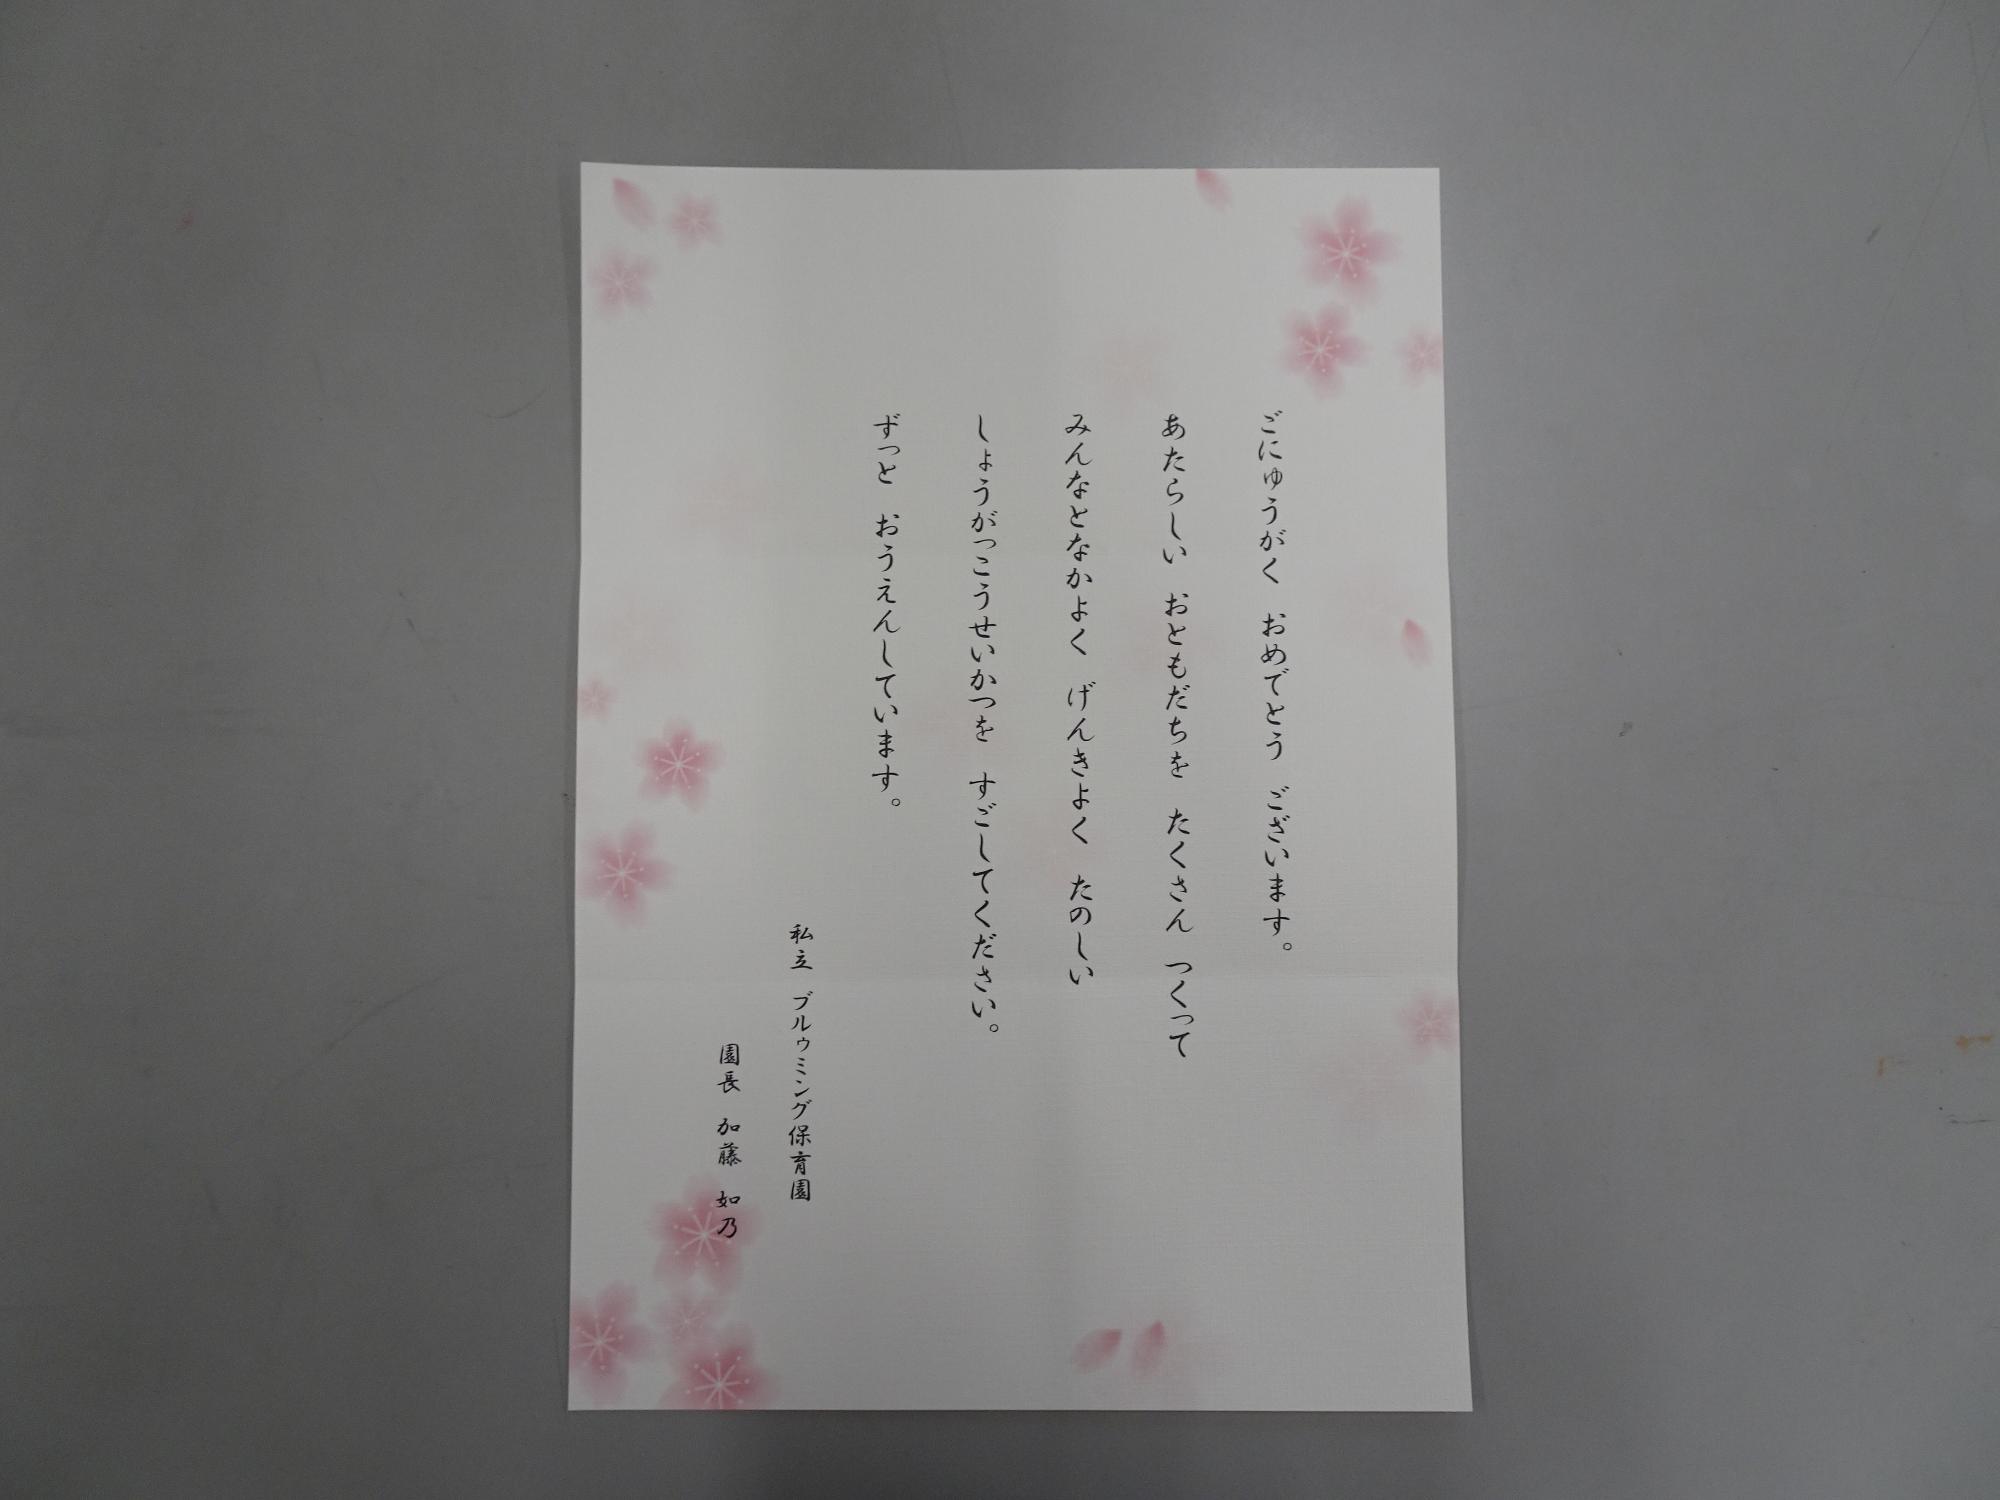 ごにゅうがく　おめでとう　ございます。
あたらしい　おともだちを　たくさん　つくって
みんなとなかよく　げんきよく　たのしい
しょうがっこうせいかつを　すごしてください。
ずっと　おうえんしています。
私立　ブルゥミング保育園
園長　加藤　如乃